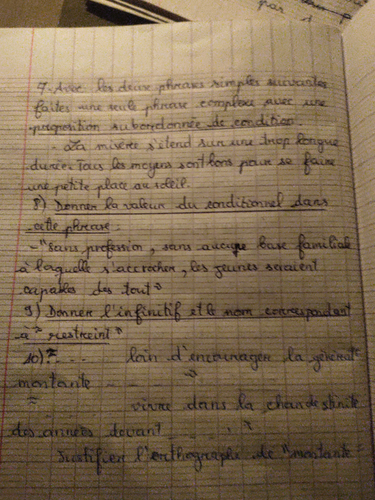 par
7. Avec les deux phrases simples suivantes
faites une seule phrase complexe avec une
proposition subordonnée de condition.
- La misère s'étend sur une trop longue
durée. Tous les moyens sont bons pour se faire
une petite place au soleil.
8) Donner la valeur du conditionnel dans
cette phrase:
- "Sans profession, sans aucune base familiale
à laquelle s'accrocher, les jeunes seraient
capables des tout"
9) Donner l'infinitif et le nom correspondant
à "restreint"
10) " - - - loin d'encourager la générat
montante - - - "
" vivre dans la chandestinité
des années devant - - - "
Justifier l'orthographe de "montante"